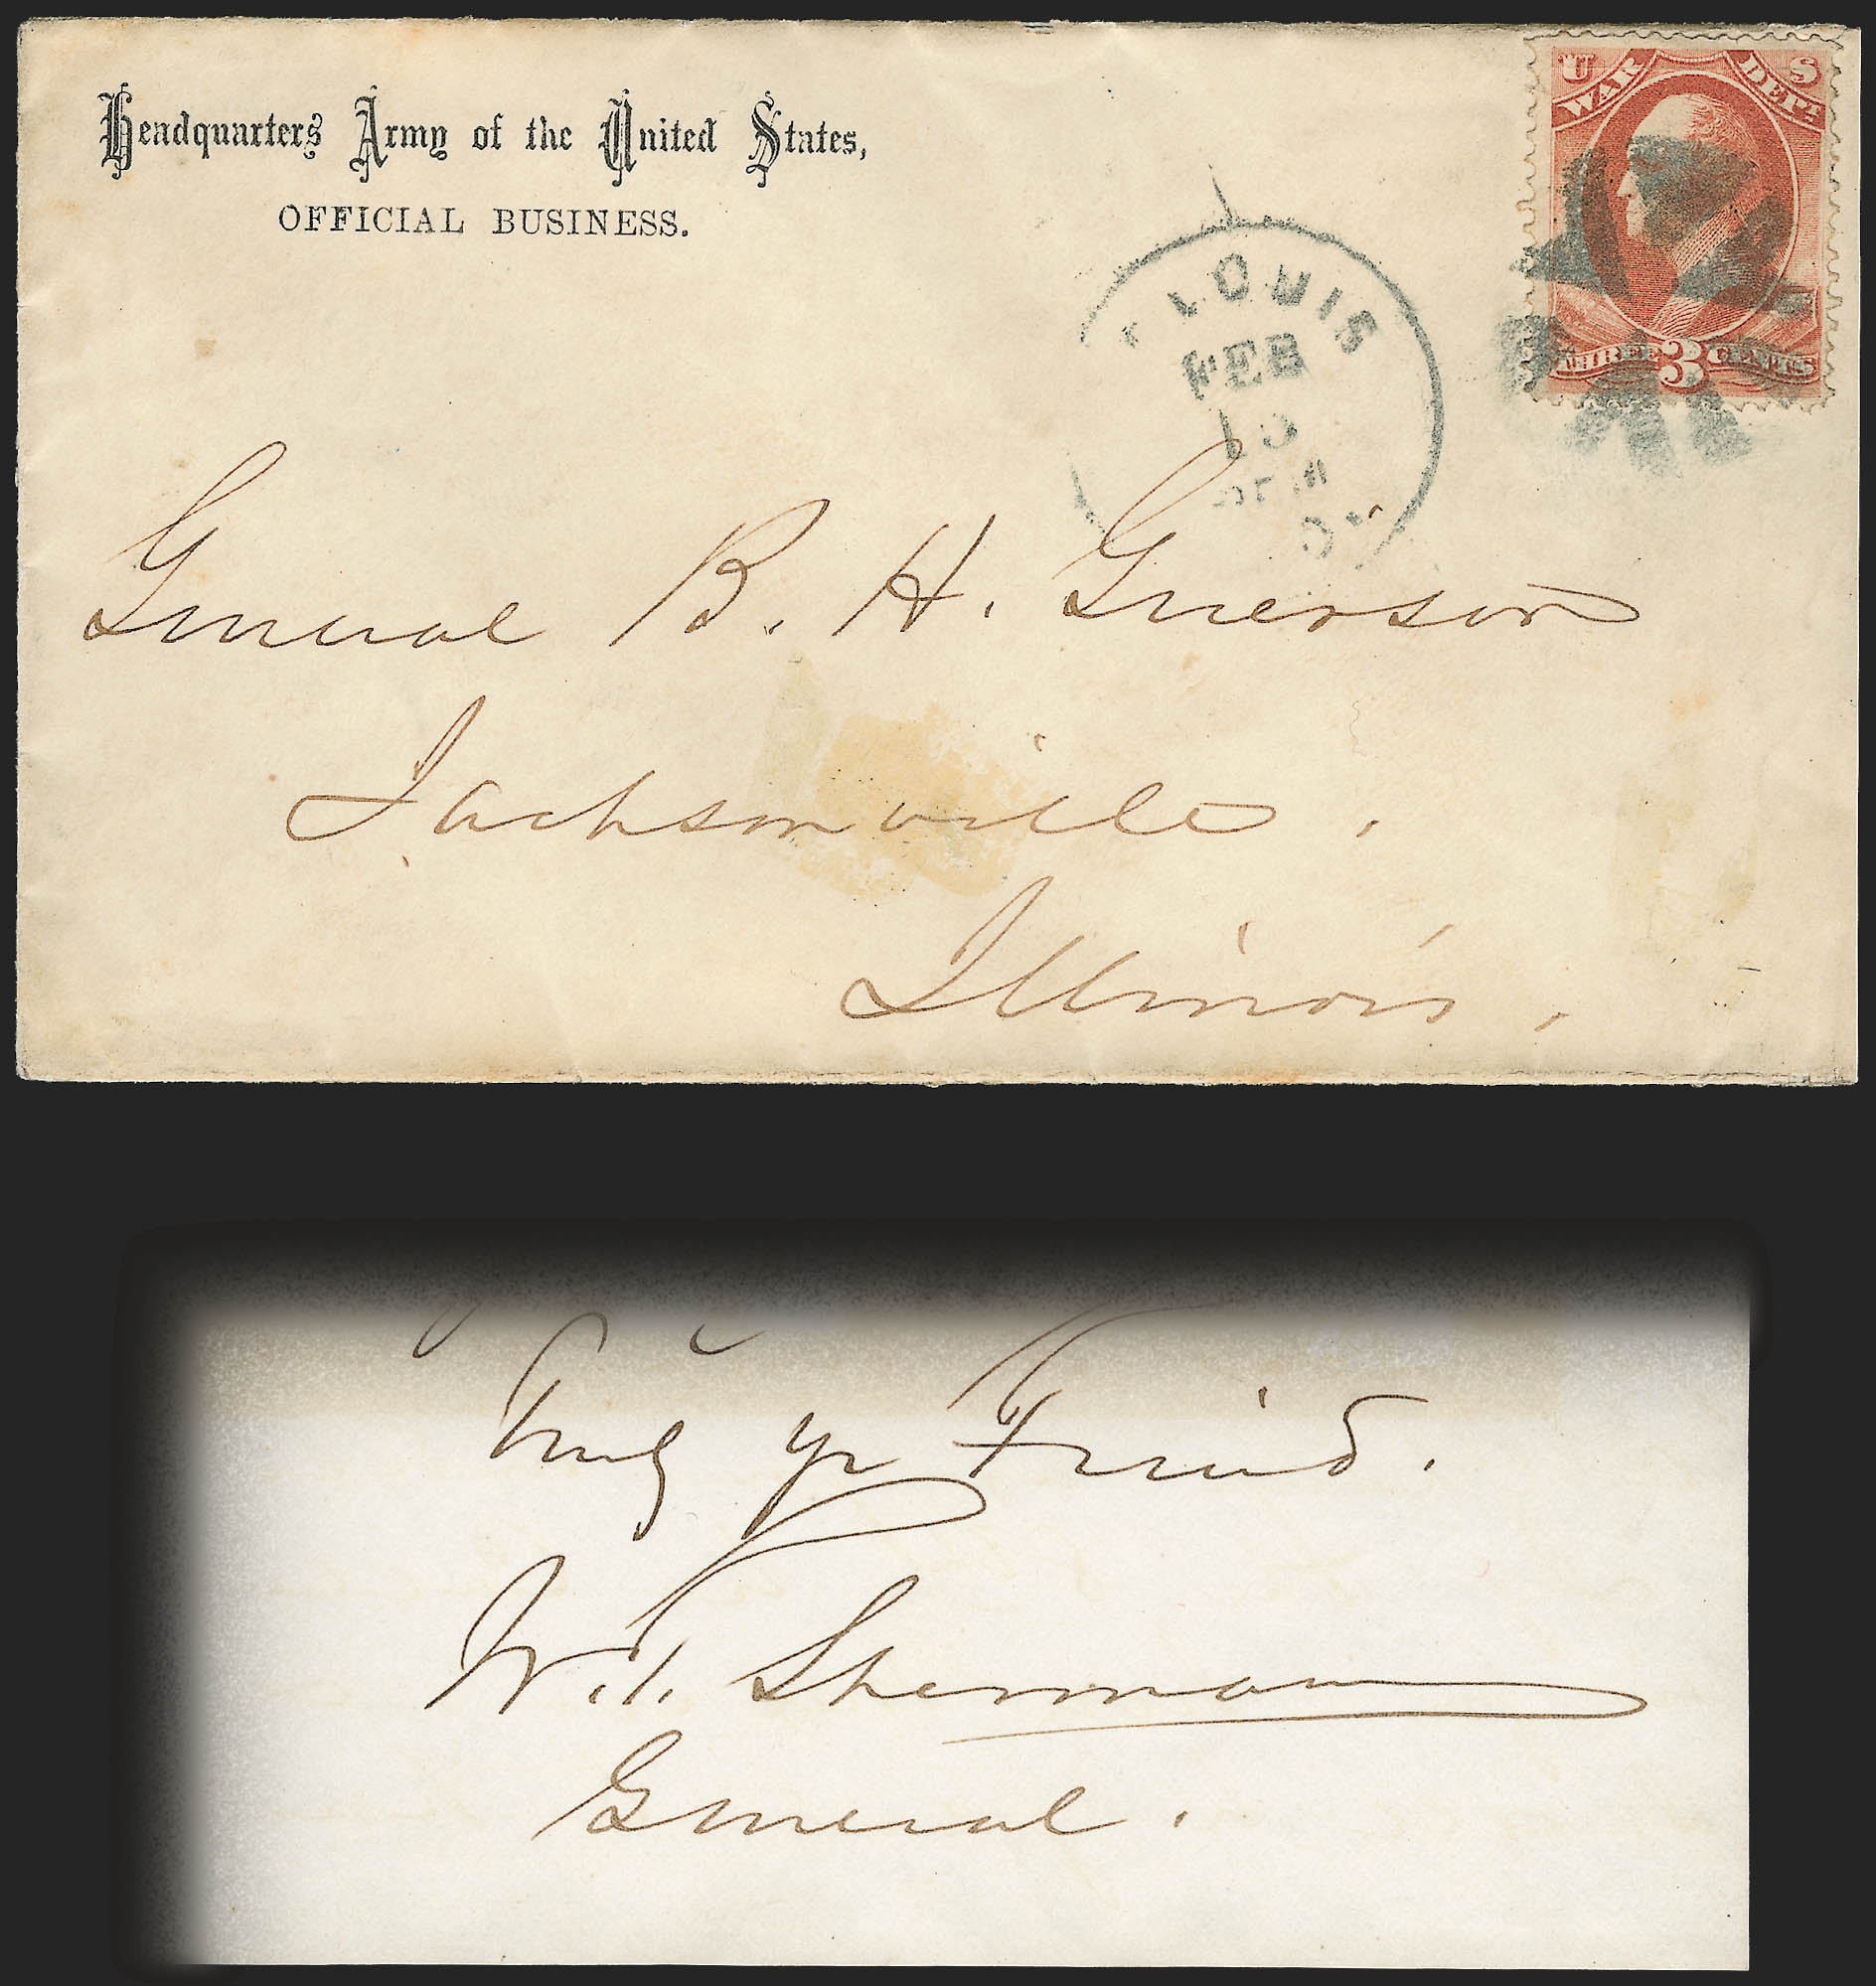 Headquarters Army of the United States,
OFFICIAL BUSINESS.
U S
WAR DEPT.
THREE 3 CENTS
LOUIS
FEB
General B. H. Grierson
Jacksonville,
Illinois,
Truly yr Friend.
W. T. Sherman
General.